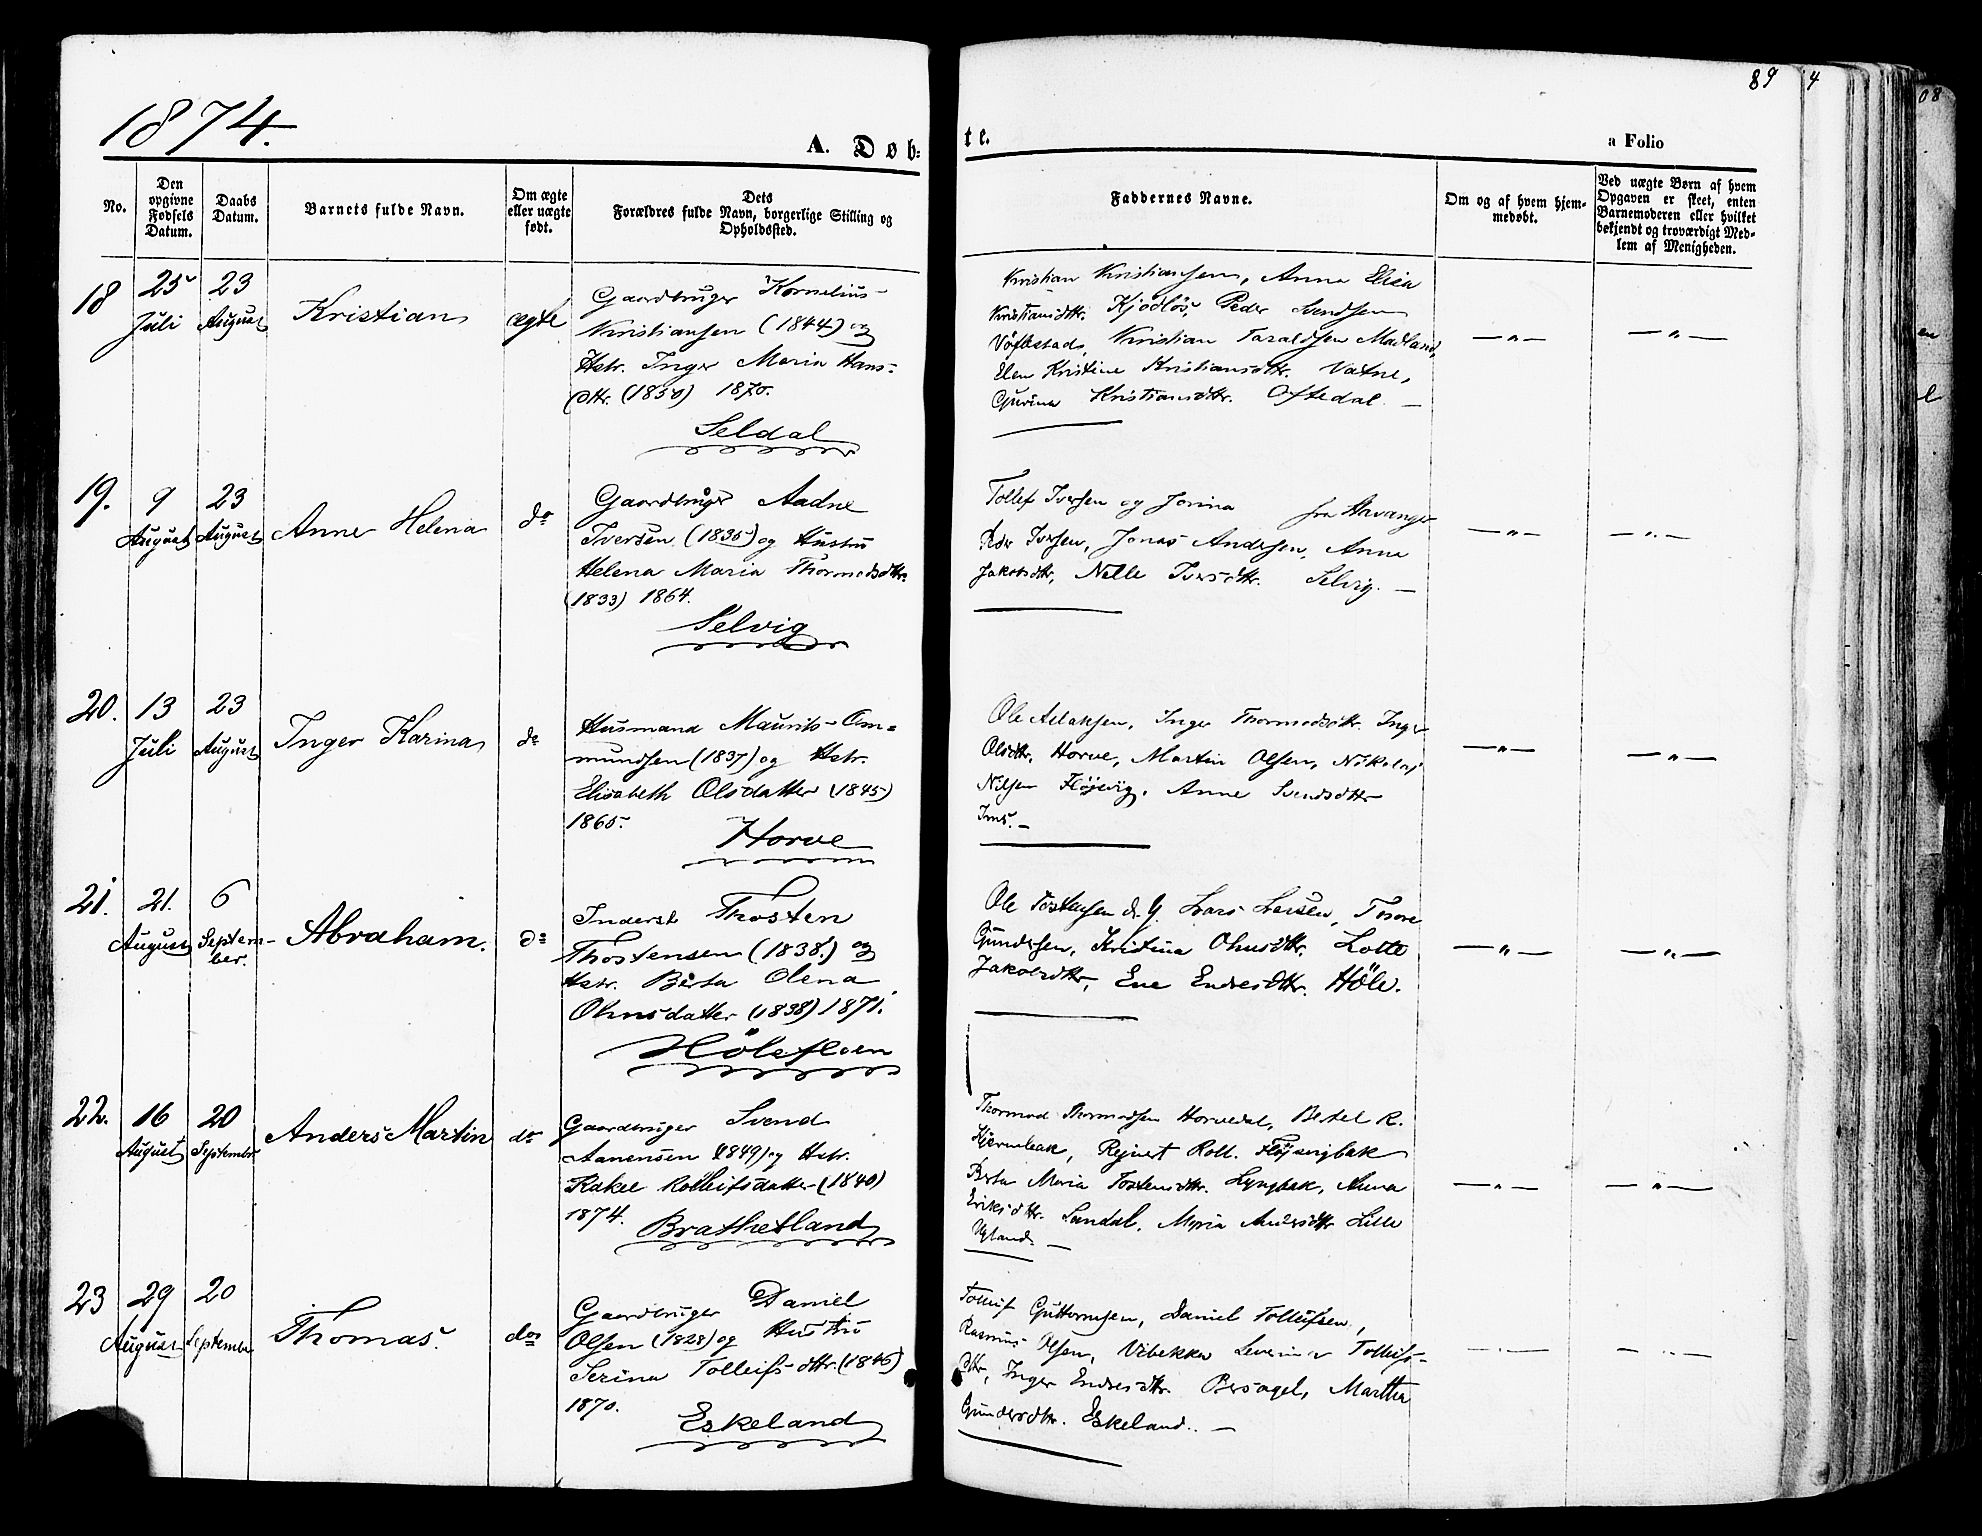 1874.
A. Døb-
te.
a Folio
89
4
08
No.
Den opgivne Fødsels Datum.
Daabs Datum.
Barnets fulde Navn.
Om ægte eller uægte født.
Dets Forældres fulde Navn, borgerlige Stilling og Opholdssted.
Faddernes Navne.
Om og af hvem hjemmedøbt.
Ved uægte Børn af hvem Opgaven er skeet, enten Barnemoderen eller hvilket bekjendt og troværdigt Medlem af Menigheden.
18
25 Juli
23 August
Kristian
ægte
Gaardbruger Kornelius
Kristiansen (1844) og
Hstr. Inger Maria Hans-
dttr. (1850) 1870.
Seldal
Kristian Kristiansen, Anna Elisa
Kristiansdttr. Kjødløs, Peder Svendsen
Kristian Taraldsen Madland,
Elen Kristine Kristiansdttr. Vatne,
Gurina Kristiansdttr. Oftedal. —
— " —
— " —
19.
9 August
23 August
Anne Helena
do
Gaardbruger Aadne
Iversen (1835) og Hustru
Helena Maria Thormodsdttr.
(1833) 1864.
Selvig
Tollef Iversen og Jorina fra Stavanger
Peder Iversen, Jonas Andersen, Anna
Jakobsdttr, Nelle Iversdttr. Selvig. —
— " —
— " —
20.
13 Juli
23 August
Inger Karina
do
Husmand Maurits Om-
mundsen (1837) og Hstr.
Elisabeth Olsdatter (1845)
1865.
Horve
Ole Aslaksen, Inger Thormodsdttr. Inger
Olsdttr. Horve, Martin Olsen, Nikolaj
Nilsen Fløjsvig, Anne Svendsdttr
Ims. —
— " —
— " —
21.
21. August
6 September.
Abraham.
do
Inderst Thosten
Thostensen (1838.) og
Hstr. Berta Olena
Ohnsdatter (1838) 1871.
Hölesloen
Ole Tostensen d. y. Lars Larsen, Tore
Gundersen, Kristina Ohnsdttr. Lotte
Jakobsdttr, Ene Endresdttr. Höle.
— " —
— " —
22.
16 August
20 September
Anders Martin
do
Gaardbruger Svend
Aanensen (1849) og Hstr.
Rakel Rolleifsdatter (1840)
1874.
Brathetland
Thormod Thormodsen Horvedal, Bertel R.
Kjærnebak, Rejnert Roll. Fløjsvigbak
Berta Maria Tostensdttr. Lyngbak, Anna
Eriksdttr. Sandal, Maria Andersdttr Lille
Uglands —
— " —
— " —
23
29 August
20 September
Thomas.
do
Gaardbruger Daniel
Olsen (1828) og Hustru
Serina Tolleifsdttr. (1846)
1870.
Eskeland
Tolleif Guttormsen, Daniel Tolleifsen,
Rasmus Olsen, Vibekka Severina Tolleifs-
dttr, Inger Endresdttr. Bersagel, Martha
Gundersdttr. Eskeland. —
— " —
— " —